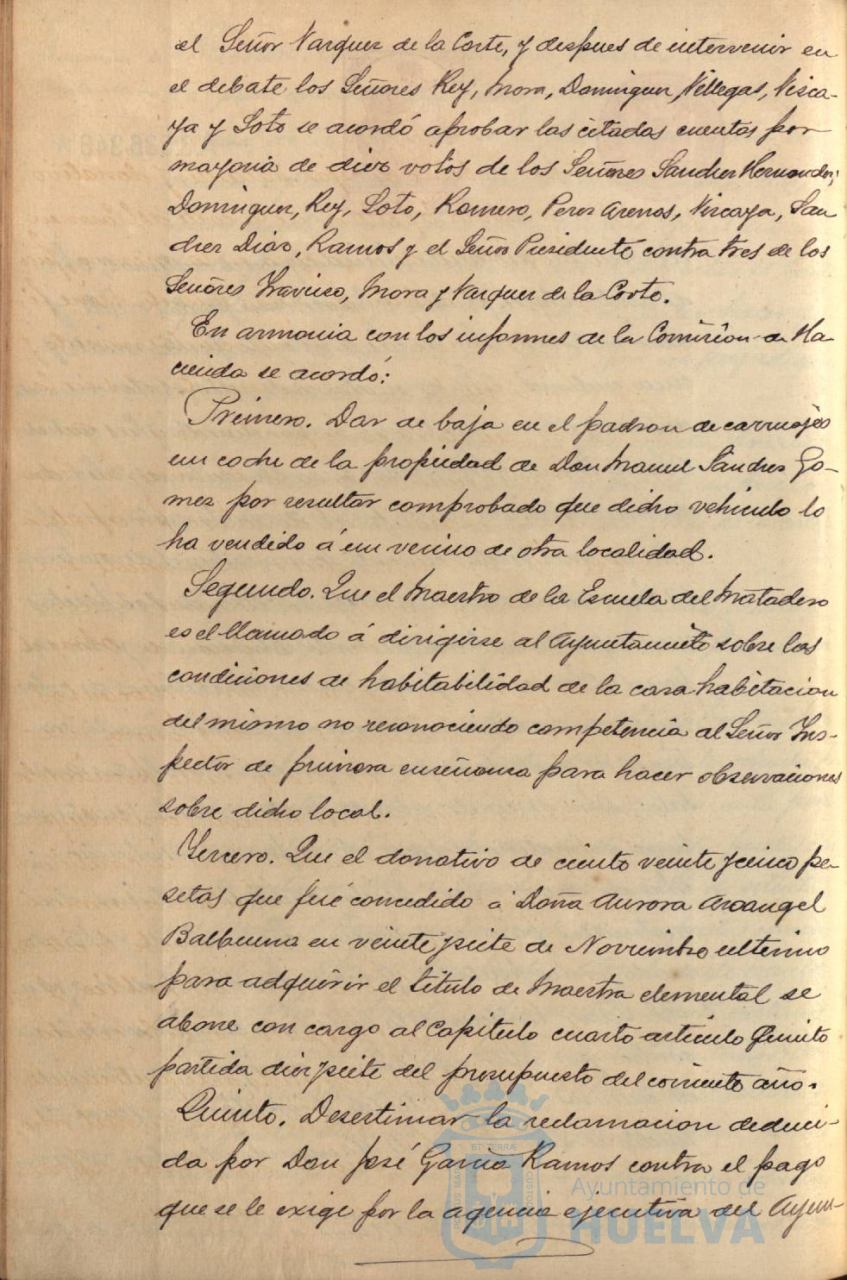 el Señor Vazquez de la Corte, y despues de intervenir en
el debate los Señores Rey, Mora, Dominguez, Villegas, Visca-
ya y Soto se acordó aprobar las citadas cuentas por
mayoria de diez votos de los Señores Sanchez Hernandez,
Dominguez, Rey, Soto, Romero, Perez Arenas, Viscaya, San
chez Diaz, Ramos y el Señor Presidente contra tres de los
Señores Travieso, Mora y Vazquez de la Corte.
En armonia con los informes de la Comision de Ha-
cienda se acordó:
Primero. Dar de baja en el padron de carruajes
un coche de la propiedad de Don Manuel Sanchez Go-
mez por resultar comprobado que dicho vehiculo lo
ha vendido á un vecino de otra localidad.
Segundo. Que el Maestro de la Escuela del Matadero
es el llamado á dirigirse al Ayuntamiento sobre las
condiciones de habitabilidad de la casa habitacion
del mismo no reconociendo competencia al Señor Ins-
pector de primera enseñanza para hacer observaciones
sobre dicho local.
Tercero. Que el donativo de ciento veinte y cinco pe-
setas que fué concedido á Doña Aurora Arcangel
Balbuena en veinte y siete de Noviembre ultimo
para adquirir el titulo de Maestra elemental se
abone con cargo al Capitulo cuarto articulo Quinto
partida diez y siete del presupuesto del corriente año.
Quinto. Desestimar la reclamacion deduci-
da por Don José Garcia Ramos contra el pago
que se le exige por la agencia ejecutiva del Ayun-
Ayuntamiento de
HUELVA